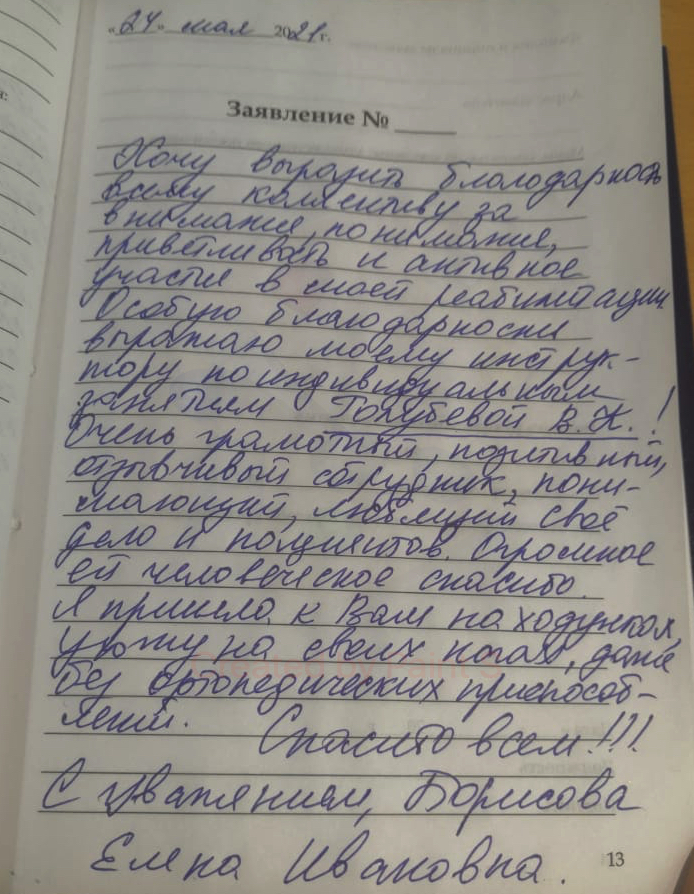 "24" мая 2021г.
Заявление № ____
Хочу выразить благодарность
всему коллективу за
внимание, понимание,
приветливать и активное
участие в моей реабилитации
Особую благодарности
выражаю моему инструк-
тору по индивидуальным
занятиям Голубевой В.Н.!
Очень грамотный, позитивный,
отзывчивый сотрудник, пони-
мающий, любящий своё
дело и пациентов. Огромное
ей человеческое спасибо.
Я пришла к Вам на ходунках,
ухожу на своих ногах, даже
без ортопедических приспособ-
лений. Спасибо всем!!!
С уважением, Борисова
Елена Ивановна.
13